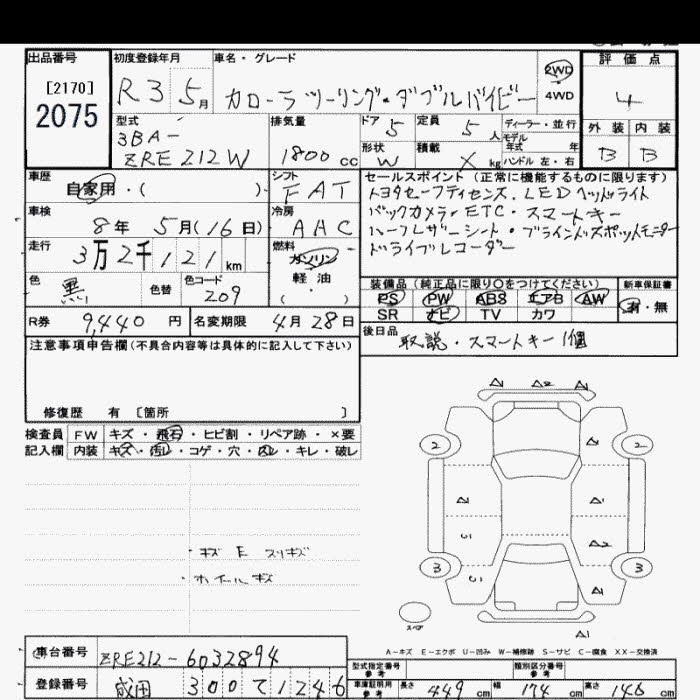 出品番号
[2170]
2075
初度登録年月
R3 5月
車名・グレード
カローラツーリング・ダブルバイビー
2WD
4WD
評価点
4
外装 内装
B B
型式
3BA-
ZRE212W
排気量
1800 cc
ドア 5
定員 5人
形状 W
積載 X kg
ディーラー・並行
モデル
年式 年
ハンドル 左・右
車歴
自家用・( )
シフト
FAT
車検
8年 5月(16日)
冷房
AAC
走行
3万2千121km
燃料
ガソリン
軽油
( ・ )
色
黒
色替
色コード
209
R券 9,440円
名変期限 4月28日
セールスポイント(正常に機能するものに限ります)
トヨタセーフティセンス.LEDヘッドライト
バックカメラ・ETC・スマートキー
ハーフレザーシート・ブラインドスポットモニター
ドライブレコーダー
装備品(純正品に限り○をつけてください)
PS PW ABS エアB AW
SR ナビ TV カワ
新車保証書
有・無
後日品 取説・スマートキー1個
注意事項申告欄(不具合内容等は具体的に記入して下さい)
修復歴 有 〔箇所 〕
検査員 FW キズ・飛石・ヒビ割・リペア跡・×要
記入欄 内装 キズ・汚レ・コゲ・穴・凹レ・キレ・破レ
A1 A2 A1
2 A2 2
A1 A1
A2
3 A1 3
スペア
A1
・キズ E スリキズ
・ホイールキズ
A-キズ E-エクボ U-凹み W-補修跡 S-サビ C-腐食 XX-交換済
車台番号 ZRE212-6032894
登録番号 成田 300 て 1246
型式指定番号
参考
類別区分番号
参考
車庫証明用
参考
長さ 449cm 幅 174cm 高さ 146cm